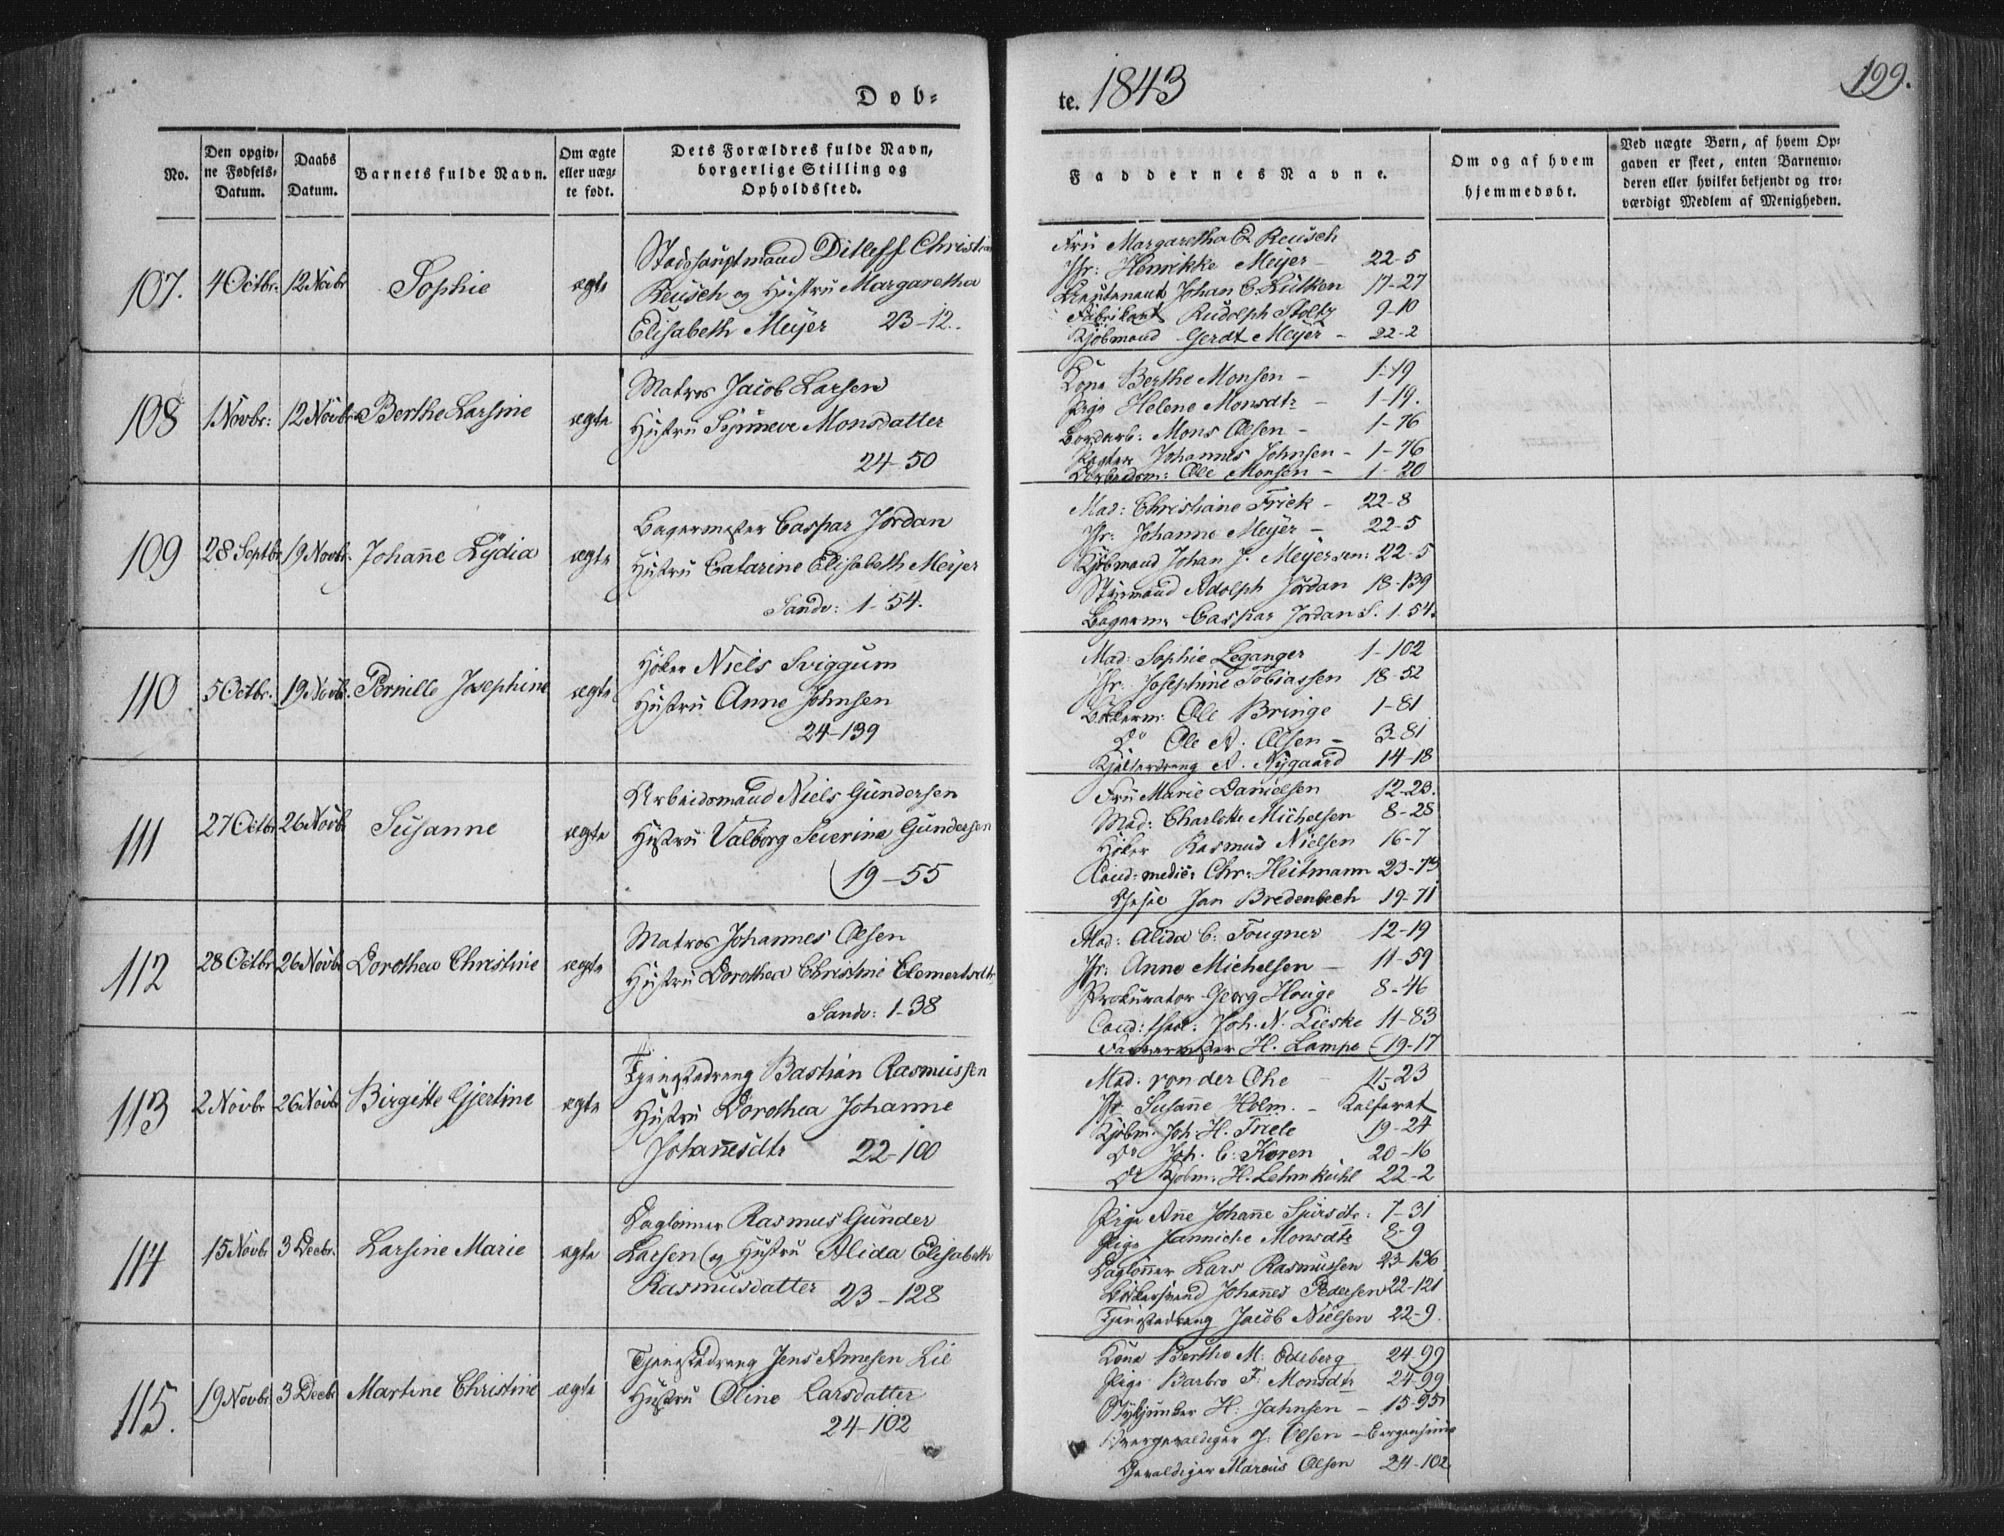 Døb-
te. 1843
199.
No.
Den opgiv-
ne Fødsels-
Datum.
Daabs
Datum.
Barnets fulde Navn.
Om ægte
eller uæg-
te født.
Dets Forældres fulde Navn,
borgerlige Stilling og
Opholdssted.
Faddernes Navne.
Om og af hvem
hjemmedøbt.
Ved uægte Børn, af hvem Op-
gaven er skeet, enten Barnemo-
deren eller hvilket bekjendt og tro-
værdigt Medlem af Menigheden.
107. 4 Octbr. 12 Novbr Sophie ægte
Stadshauptmand Ditleff Christian
Reusch og Hustru Margaretha
Elisabeth Meyer 23-12.
Fru Margaretha E Reusch
Jfr: Henrikke Meyer - 22-5
Lieutenant Johan C. Lütken 17-27
Fabrikant Rudolph Stoltz 9-10
Kjøbmand Gerdt Meyer - 22-2
108 1 Novbr: 12 Novbr Berthe Larsine ægte
Matros Jacob Larsen
Hustru Synneve Monsdatter
24-50
Kone Berthe Monsen - 1-19
Pige Helene Monsdtr - 1-19.
Bordarb: Mons Olsen - 1-76
Johannes Johnsen - 1-76
Arbeidsm: Ole Monsen - 1-20
109 28 Septbr 19 Novbr. Johanne Lydia ægte
Bagermester Caspar Jordan
Hustru Catarine Elisabeth Meyer
Sandv: 1-54.
Mad: Christiane Frick - 22-8
Jfr: Johanne Meyer - 22-5
Kjøbmand Johan J. Meyer sen: 22-5
Styrmand Adolph Jordan 18-139
Bagerm: Caspar Jordan S. 1-54.
110 5 Octbr. 19 Novbr. Pernille Josephine ægte
Høker Niels Sviggum
Hustru Anne Johnsen
24-139
Mad: Sophie Leganger 1-102
Jfr: Josephine Tobiassen 18-52
Ole Bringe 1-81
Do Ole A. Olsen - 3-81
N. Nygaard 14-18
111 27 Octbr 26 Novbr Susanne ægte
Arbeidsmand Niels Gundersen
Hustru Valborg Severine Gundersen
19-55
Fru Marie Danielsen 12-23.
Mad: Charlotte Michelsen 8-28
Høker Rasmus Nielsen 16-7
Cand: medic: Chr: Heitmann 23-73
Jan Bredenbech 19-71
112 28 Octbr 26 Novbr Dorothea Christine ægte
Matros Johannes Olsen
Hustru Dorothea Christine Clemertsdtr
Sandv: 1-38
Mad: Alida C: Fougner 12-19
Jfr: Anne Michelsen - 11-59
Prokurator Georg Houge 8-46
Cand: theol: Joh. N. Lieske 11-83
Farvermester H. Lampe 19-17
113 2 Novbr 26 Novbr Birgitte Gjertine ægte
Tjenestedreng Bastian Rasmussen
Hustru Dorothea Johanne
Johannesdtr 22-100
Mad: von der Ohe - 15-23
Jfr Susanne Holm. - Kalfaret
Kjøbm. Joh: H. Friele 19-24
Do Joh. C: Koren 20-16
Do Kjøbm: H. Lehmkuhl 22-2
114 15 Novbr 3 Decbr. Larsine Marie ægte
Daglønner Rasmus Gunder
Larsen og Hustru Alida Elisabeth
Rasmusdatter 23-128
Pige Anne Johanne Sjursdtr: 7-31
Pige Janniche Monsdtr 8-9
Dagløner Lars Rasmussen 23-136
Bødkersvend Johannes Pedersen 22-121
Tjenestedreng Jacob Nielsen 22-9.
115. 19 Novbr. 3 Decbr Martine Christine ægte
Tjenestedreng Jens Arnesen Lie
Hustru Oline Larsdatter
24-102
Kone Berthe M: Odeberg 24-99
Pige Barbro F. Monsdtr 24-99
Stykjunker H: Jahnsen - 15-95
J: Olsen - Bergenhuus
Gevaldiger Marcus Olsen 24-102